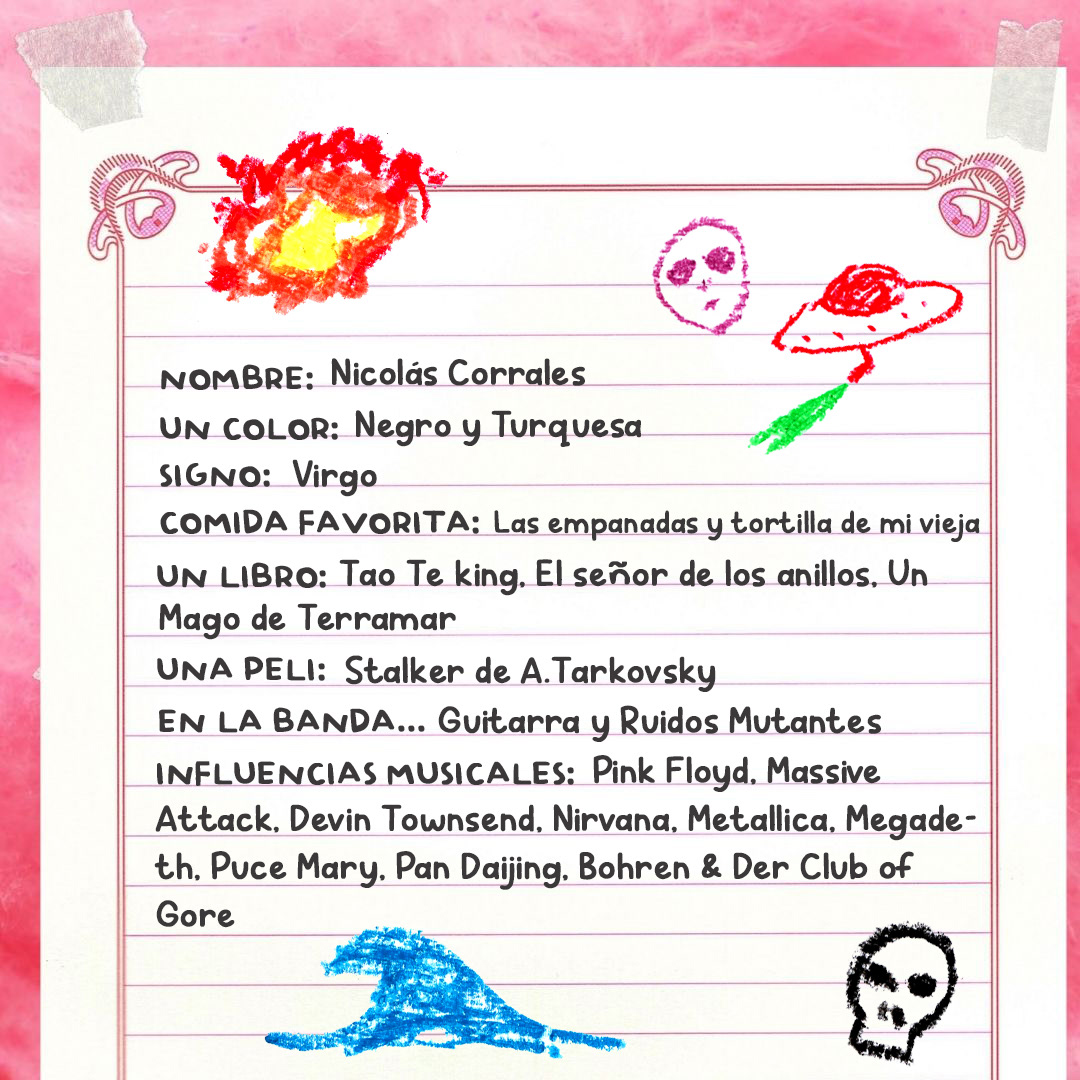 NOMBRE: Nicolás Corrales
UN COLOR: Negro y Turquesa
SIGNO: Virgo
COMIDA FAVORITA: Las empanadas y tortilla de mi vieja
UN LIBRO: Tao Te king, El señor de los anillos, Un
Mago de Terramar
UNA PELI: Stalker de A.Tarkovsky
EN LA BANDA... Guitarra y Ruidos Mutantes
INFLUENCIAS MUSICALES: Pink Floyd, Massive
Attack, Devin Townsend, Nirvana, Metallica, Megade-
th, Puce Mary, Pan Daijing, Bohren & Der Club of
Gore